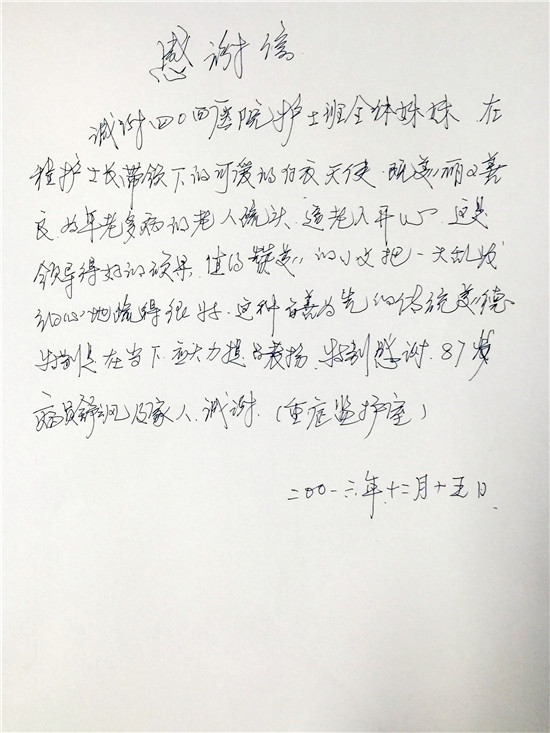 感谢信
诚谢四0四医院护士班全体姊妹 在
护士长带领下的可爱的白衣天使.既美丽又善
良为年老多病的老人梳头.逗老人开心.这是
领导得好的硕果.值得赞美的小文把一大乱发
细心地梳得很好.这种百善为先的传统美德
特别是在当下应大力提倡表扬.特别感谢.87岁
病员 及家人.诚谢.(重症监护室)
二00一六年.十二月十五日.